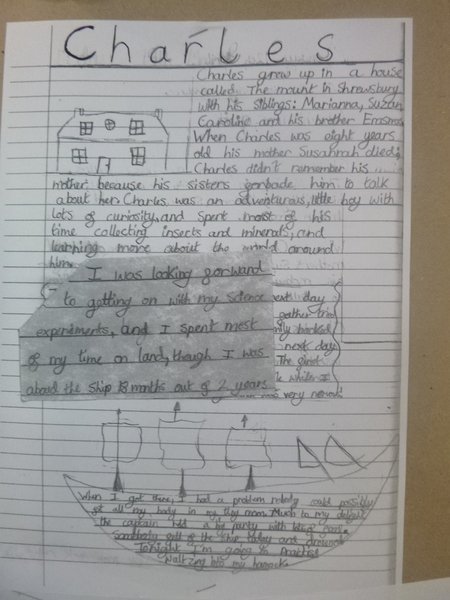 Charles
Charles grew up in a house
called The mount in Shrewsbury
with his siblings: Marianna, Suzan,
Caroline and his brother Erasmus
When Charles was eight years
old his mother Susannah died;
Charles didn't remember his
mother because his sisters forbade him to talk
about her. Charles was an adventurous, little boy with
lots of curiosity, and spent most of his
time collecting insects and minerals, and
learning more about the world around
him.
I was looking forward
to getting on with my science
experements, and I spent most
of my time on land, though I was
aboad the ship 18 months out of 2 years
day
gather
next day
The first
while I
was very
When I got there, I had a problem nobody could possibly
fit all my body in my tiny room. Much to my delight
the captain held a big party with lots of
Somebody fell off the ship today and drowned
Tonight I'm going to practise
Waltzing into my hammock